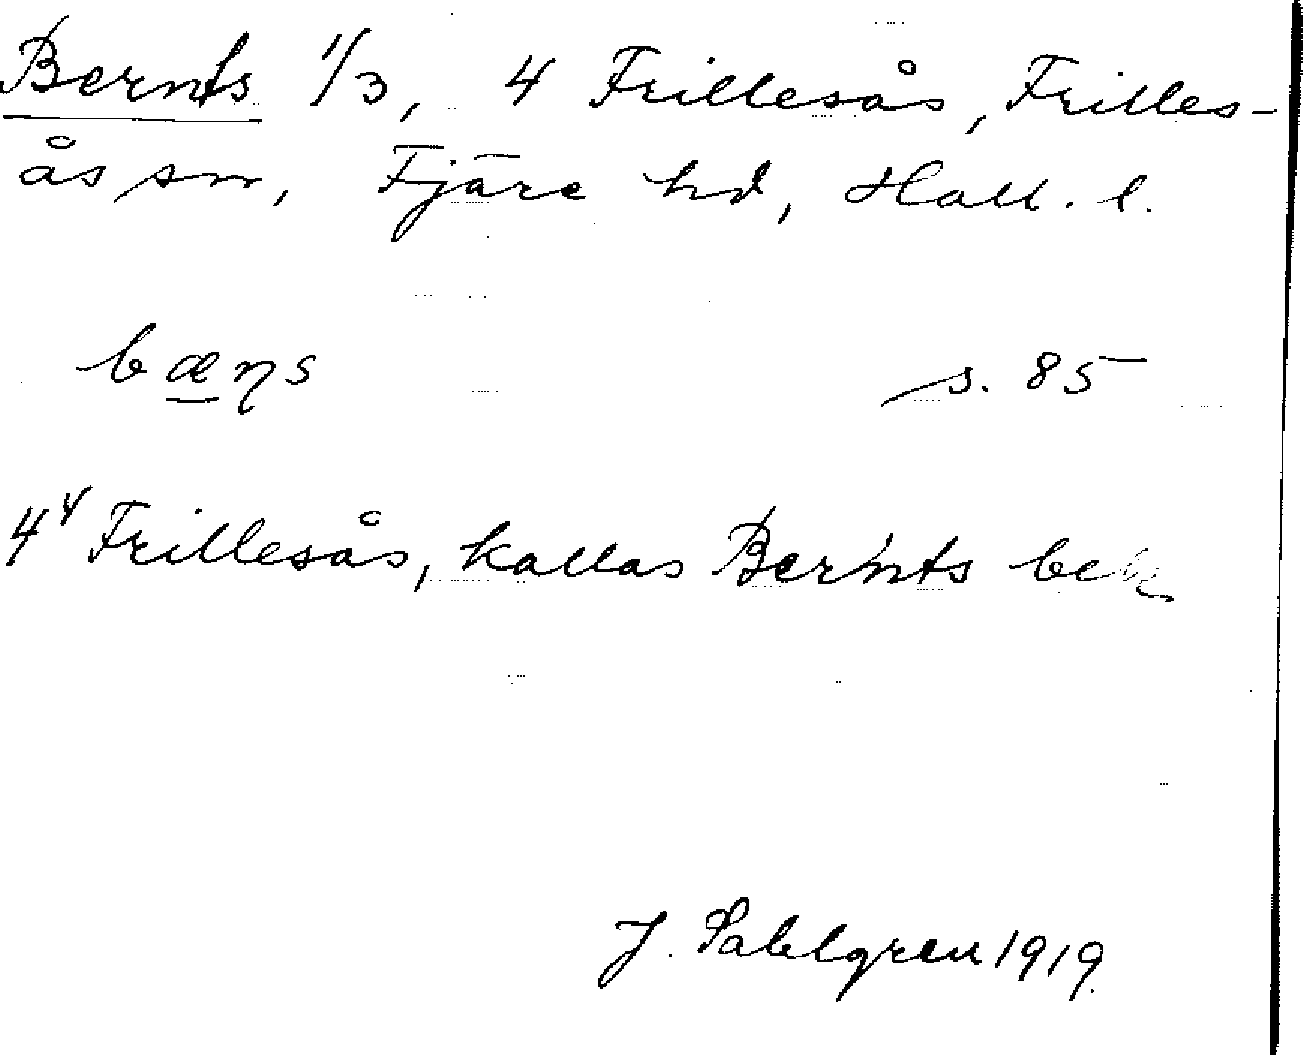 Bernts 1/3, 4 Frillesås, Frilles-
ås sn, Fjäre hd, Hall. l.
bæns s. 85
4 Frillesås, kallas Bernts bek
J. Sahlgren 1919.